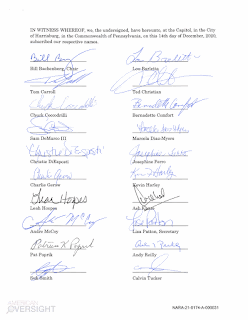 IN WITNESS WHEREOF, we, the undersigned, have hereunto, at the Capitol, in the City
of Harrisburg, in the Commonwealth of Pennsylvania, on this 14th day of December, 2020,
subscribed our respective names.
Bill Bachenberg, Chair Lou Barletta
Tom Carroll Ted Christian
Chuck Coccodrilli Bernadette Comfort
Sam DeMarco III Marcela Diaz-Myers
Christie DiEsposti Josephine Ferro
Charlie Gerow Kevin Harley
Leah Hoopes Ash Khare
Andre McCoy Lisa Patton, Secretary
Pat Poprik Andy Reilly
Suk Smith Calvin Tucker
AMERICAN
OVERSIGHT
NARA-21-0174-A-000021